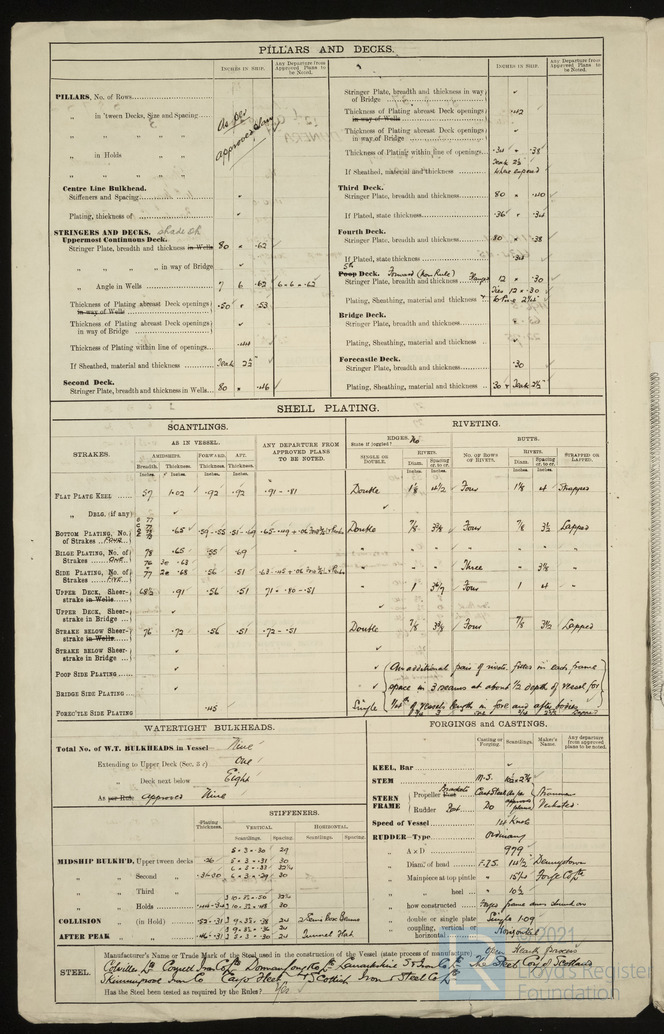 PILLARS AND DECKS.
INCHES IN SHIP.
Any Departure from Approved Plans to be Noted.
PILLARS, No. of Rows
" in 'tween Decks, Size and Spacing
As per approved plan
" " " "
" in Holds
" " " "
Centre Line Bulkhead.
Stiffeners and Spacing
Plating, thickness of
STRINGERS AND DECKS. Shade dk
Uppermost Continuous Deck.
Stringer Plate, breadth and thickness in Wells 80 × .62
" " " " in way of Bridge
" Angle in Wells 7 6 .62 6 × 6 × .62
Thickness of Plating abreast Deck openings in way of Wells .50 × .53
Thickness of Plating abreast Deck openings in way of Bridge
Thickness of Plating within line of openings .44
If Sheathed, material and thickness Teak 2½"
Second Deck.
Stringer Plate, breadth and thickness in Wells 80 × .46
INCHES IN SHIP.
Any Departure from Approved Plans to be Noted.
Stringer Plate, breadth and thickness in way of Bridge
Thickness of Plating abreast Deck openings in way of Wells .42
Thickness of Plating abreast Deck openings in way of Bridge
Thickness of Plating within line of openings .34 × .38
If Sheathed, material and thickness Teak 2½" where exposed
Third Deck.
Stringer Plate, breadth and thickness 80 × .40
If Plated, state thickness .36 × .34
Fourth Deck.
Stringer Plate, breadth and thickness 80 × .38
If Plated, state thickness .34
5th
Poop Deck. Forward (Non Rule)
Stringer Plate, breadth and thickness 12 × .30
Plating, Sheathing, material and thickness Ties 12 × .30
Bridge Deck.
Stringer Plate, breadth and thickness
Plating, Sheathing, material and thickness
Forecastle Deck.
Stringer Plate, breadth and thickness .30
Plating, Sheathing, material and thickness .30 × Teak 2½"
SHELL PLATING.
SCANTLINGS.
RIVETING.
STRAKES.
AS IN VESSEL.
AMIDSHIPS.
FORWARD.
AFT.
Breadth. Thickness. Thickness. Thickness.
Inches. Inches. Inches. Inches.
ANY DEPARTURE FROM APPROVED PLANS TO BE NOTED.
EDGES. No
State if joggled?
SINGLE OR DOUBLE.
RIVETS.
Diam. Spacing cr. to cr.
Inches. Inches.
BUTTS.
No. OF ROWS OF RIVETS.
RIVETS.
Diam. Spacing cr. to cr.
Inches. Inches.
STRAPPED OR LAPPED.
FLAT PLATE KEEL 57 1.02 .92 .92 .91 - .81 Double 1⅛ 4½ Four 1⅛ 4 Strapped
" DBLG. (if any)
BOTTOM PLATING, No. of Strakes FOUR .65 .59-.55 .51-.69 Double ⅞ 3⅜ Four ⅞ 3½ Lapped
BILGE PLATING, No. of Strakes ONE 78 .65 .55 .69 " " " " " " "
SIDE PLATING, No. of Strakes FIVE 76 77 20 .63 .68 .56 .51 " " " Three " 3⅛ "
UPPER DECK, Sheerstrake in Wells 68½ .91 .56 .51 71 - .80 - .51 " 1 Four 1 4 "
UPPER DECK, Sheerstrake in Bridge
STRAKE BELOW Sheerstrake in Wells 76 .72 .56 .51 .72 - .51 Double ⅞ 3⅜ Four ⅞ 3½ Lapped
STRAKE BELOW Sheerstrake in Bridge
POOP SIDE PLATING
BRIDGE SIDE PLATING
FOREC'TLE SIDE PLATING .45 Single
(An additional pair of rivets fitted in each frame
space in 3 seams at about ½ depth of vessel for
of vessel's length in fore and after bodies
WATERTIGHT BULKHEADS.
Total No. of W.T. BULKHEADS in Vessel Nine
Extending to Upper Deck (Sec. 3 c) One
" Deck next below Eight
As per Rule approved Nine
STIFFENERS.
Plating Thickness.
VERTICAL.
HORIZONTAL.
Scantlings. Spacing. Scantlings. Spacing.
5 × 3 × .30 29
MIDSHIP BULKH'D, Upper 'tween decks .26 5 × 3 × .31 30
" " Second " .31-.30 6 × 3 × .29 30
" " Third "
10 × 3½ × .50
" " Holds 10 × 3½ × .48 30
COLLISION " (in Hold) .52-.31 9 × 3½ × .38 24
9 × 3½ × .36 24
AFTER PEAK " " .46-.31 5 × 3 × .30 24 Tunnel Flat
FORGINGS and CASTINGS.
Casting or Forging.
Scantlings.
Maker's Name.
Any departure from approved plans to be noted.
KEEL, Bar
STEM M.S. 10½ × 2⅞
STERN FRAME
Propeller Brackets Cast Steel As per approved plans
Rudder Post Do
Speed of Vessel 18 Knots
RUDDER—Type Ordinary
" A × D 979
" Diam. of head F.I.S. 14½ Dennystown
" Mainpiece at top pintle " 15¼ Forge Co Ltd
" " heel " 10½
" how constructed Forged frame arms shrunk on
" double or single plate Single 1.09
" coupling, vertical or horizontal Horizontal
STEEL.
Manufacturer's Name or Trade Mark of the Steel used in the construction of the Vessel (state process of manufacture) Open Hearth process
Colvilles Ld Consett Iron Co Ld Dorman Long Co Ld Lanarkshire St & Iron Co Ld The Steel Coy of Scotland
Skinningrove Iron Co Cargo Fleet Scottish Iron & Steel Co Ld
Has the Steel been tested as required by the Rules? Yes
© 2021
Lloyd's Register
Foundation